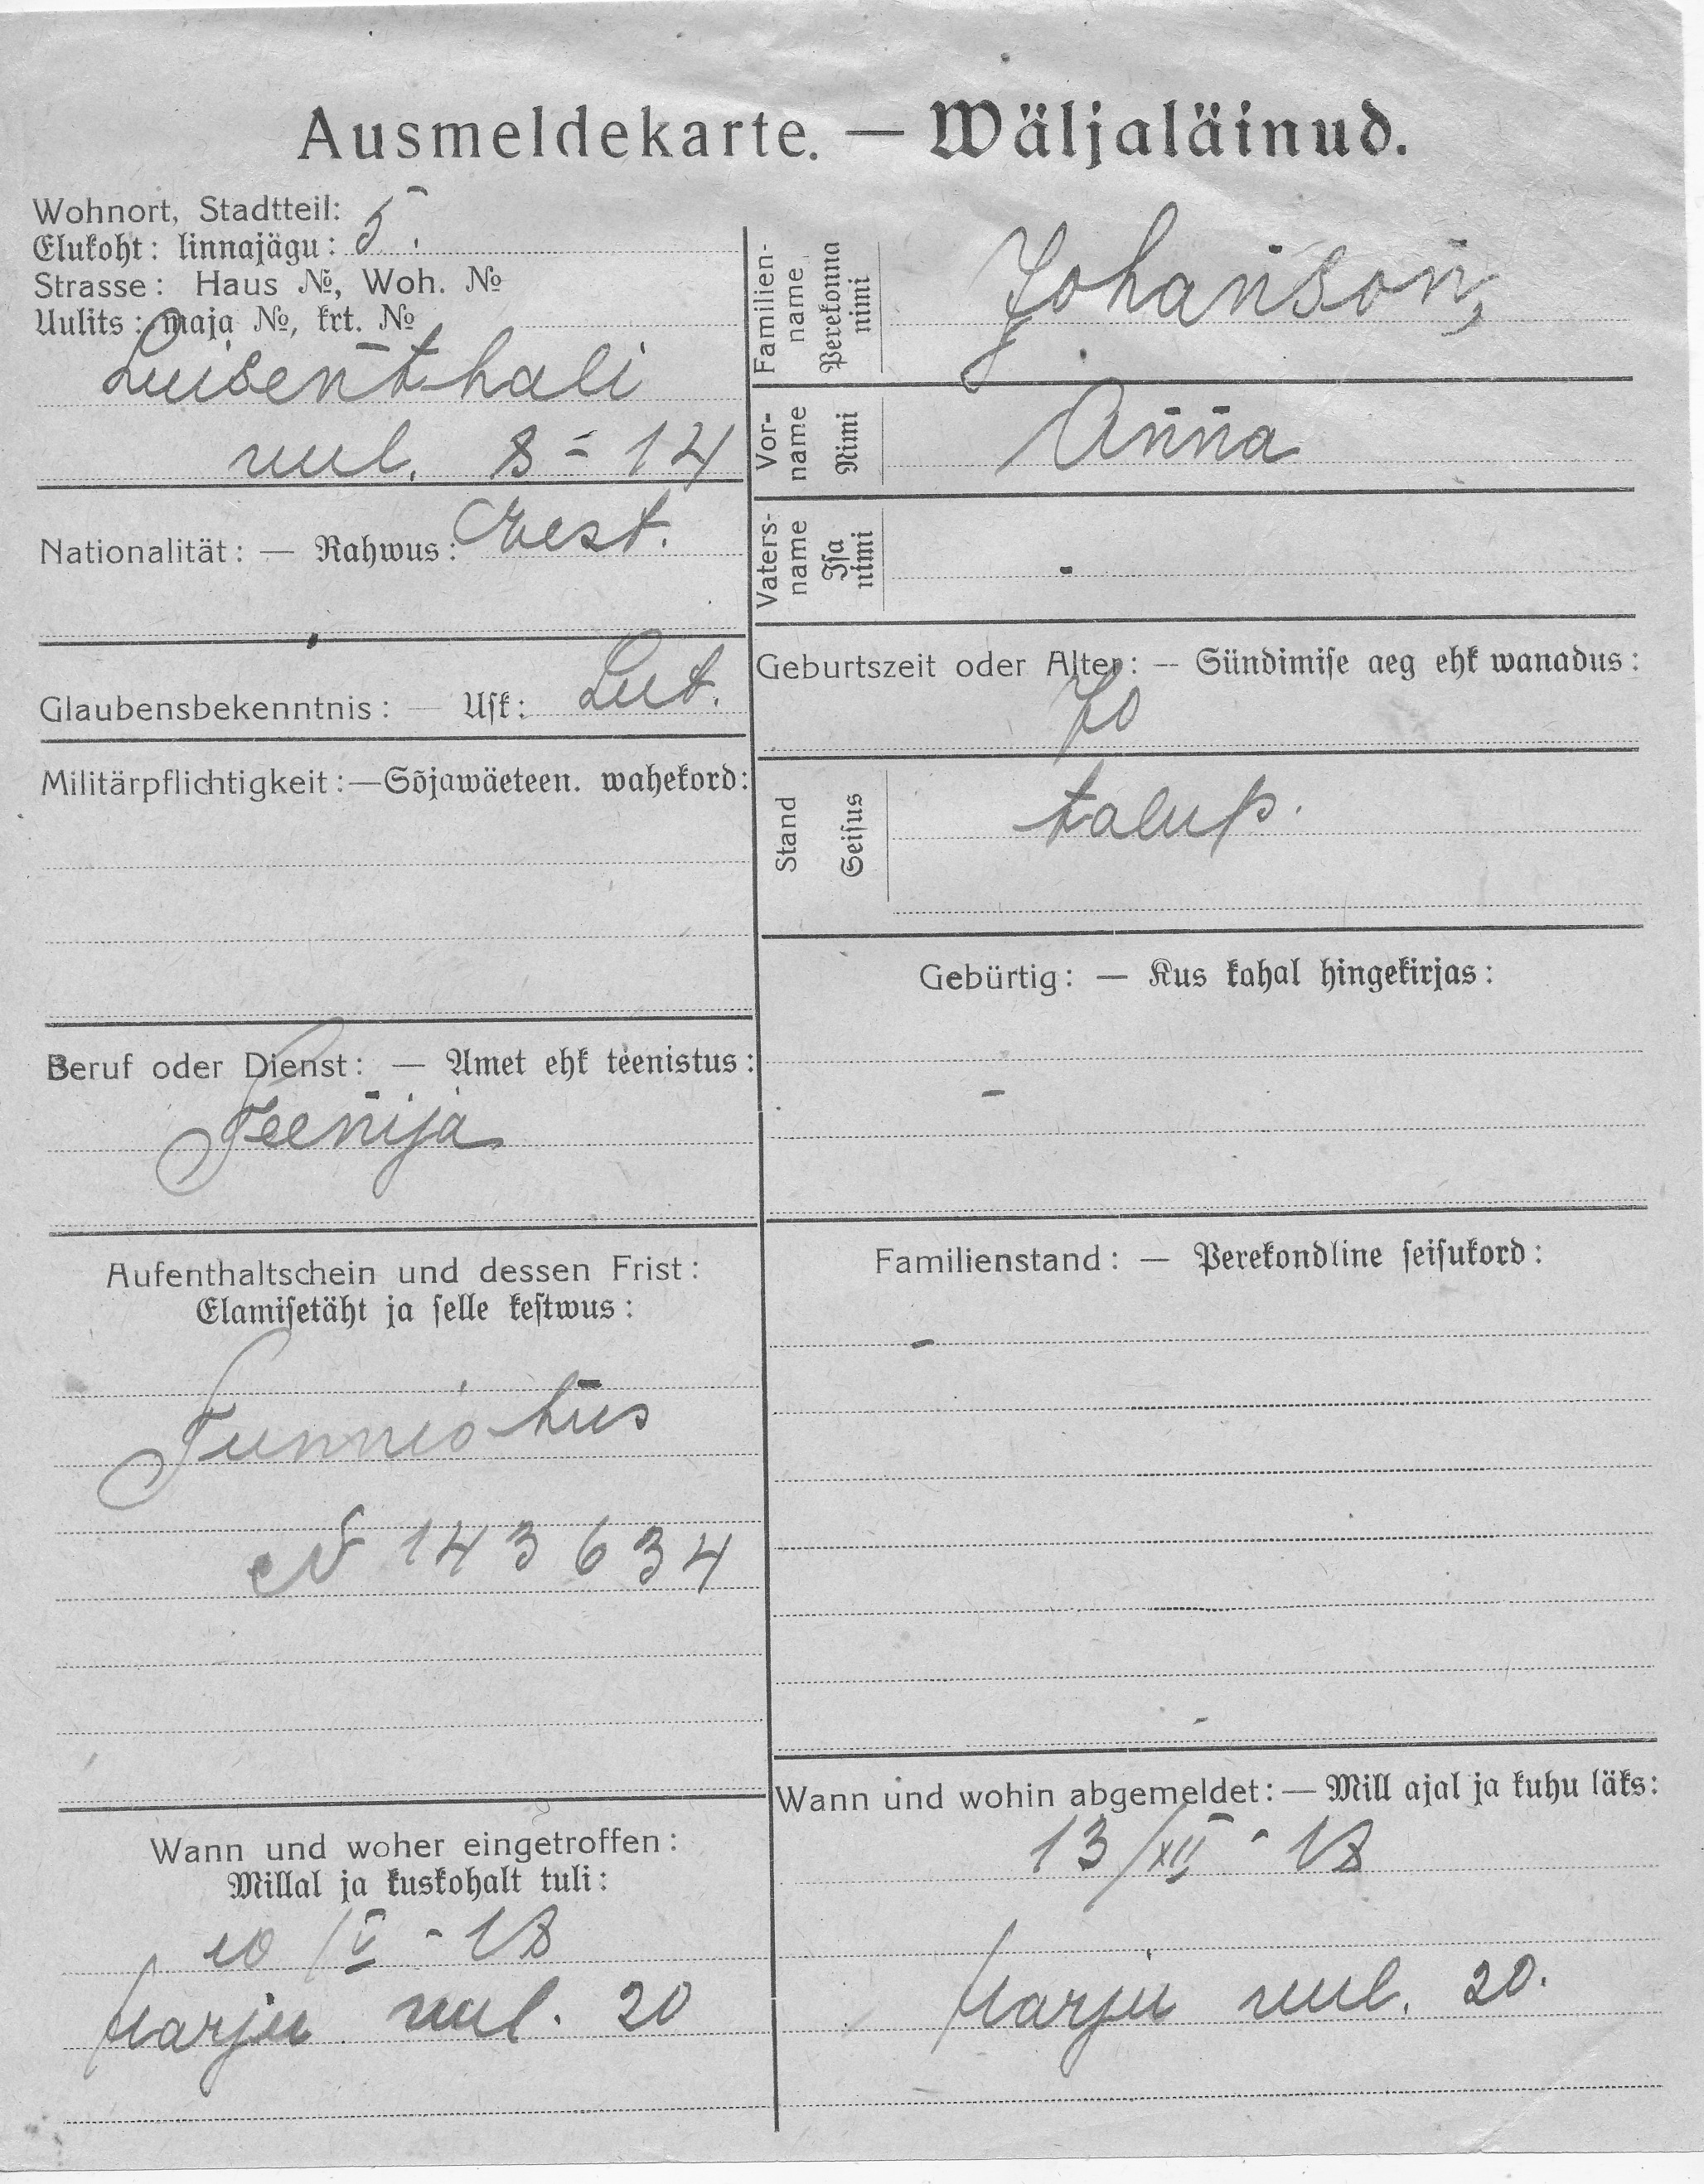 Ausmeldekarte. — Wäljaläinud.
Wohnort, Stadtteil:
Elukoht: linnajagu: 5.
Strasse: Haus №, Woh. №
Uulits: maja №, krt. №
Luisenthali
uul. 8 = 14
Nationalität: — Rahwus: Eest.
Glaubensbekenntnis: — Usk: Lut.
Militärpflichtigkeit: — Sõjawäeteen. wahekord:
Beruf oder Dienst: — Amet ehk teenistus:
Teenija
Aufenthaltschein und dessen Frist:
Elamisetäht ja selle kestwus:
Tunnistus
№ 143634
Wann und woher eingetroffen:
Millal ja kuskohalt tuli:
10/V - 18
Harju uul. 20
Familien-
name
Perekonna
nimi
Johanson,
Vor-
name
Nimi
Anna
Vaters-
name
Isa
nimi
-
Geburtszeit oder Alter: — Sündimise aeg ehk wanadus:
Stand
Seisus
talup.
Gebürtig: — Kus kohal hingekirjas:
-
Familienstand: — Perekondline seisukord:
-
Wann und wohin abgemeldet: — Mill ajal ja kuhu läks:
13/XII - 18
Harju uul. 20.